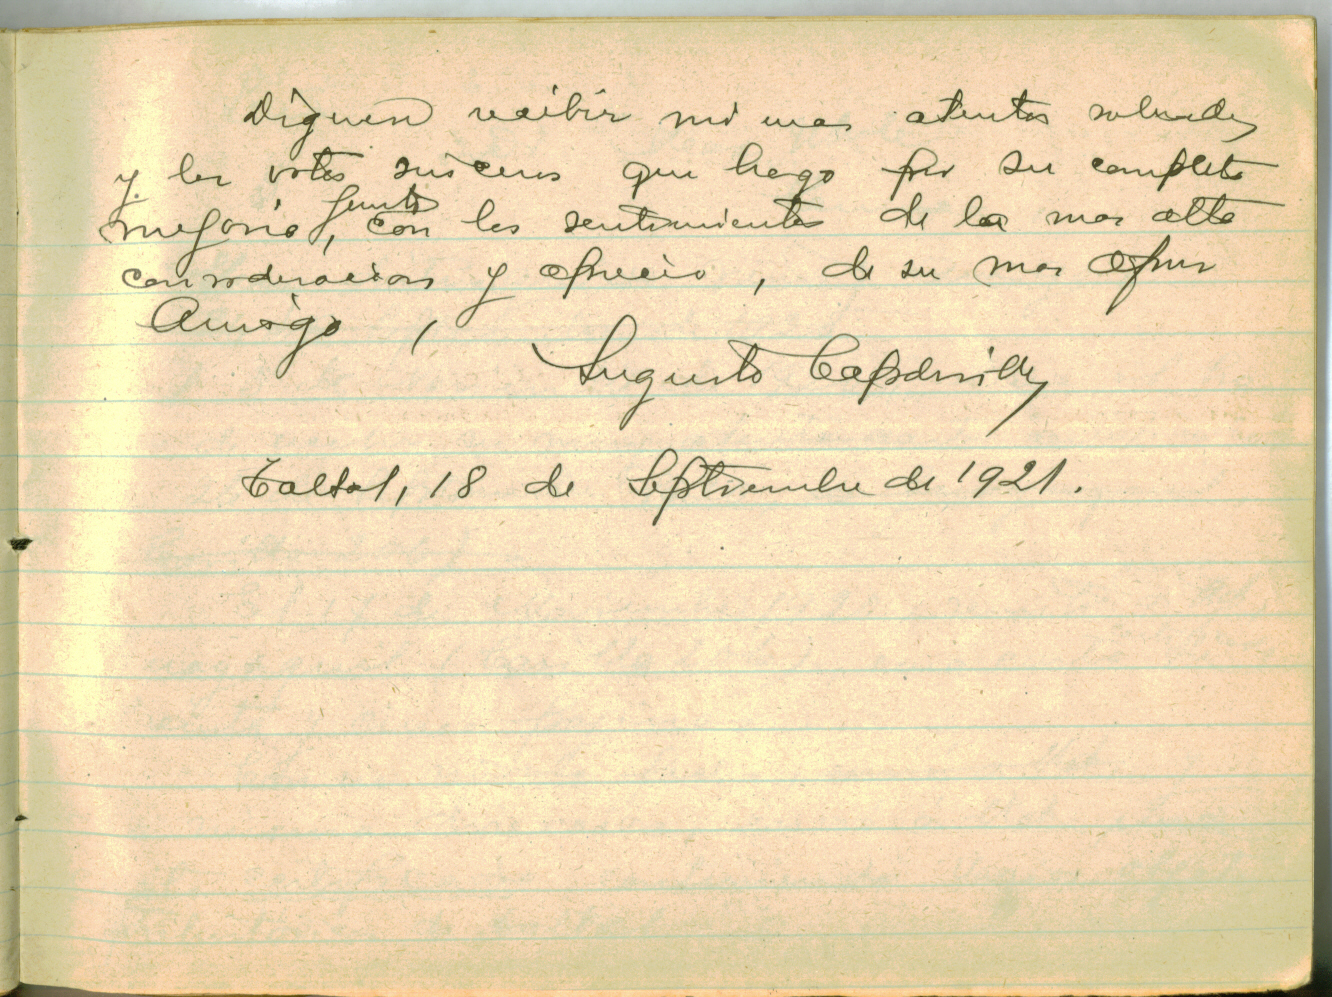 Dígnese recibir mi mas atentos saludos
y los votos sinceros que hago por su completa
mejoria, junto con los sentimientos de la mas alta
consideracion y aprecio, de su mas afmo
Amigo,
Augusto Capdeville
Taltal, 18 de Septiembre de 1921.